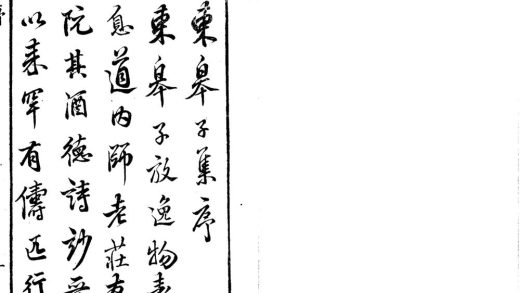 東皋子集序
東皋子放逸物表
息道內師老莊友
阮其酒德詩妙無
以來罕有儔匹行